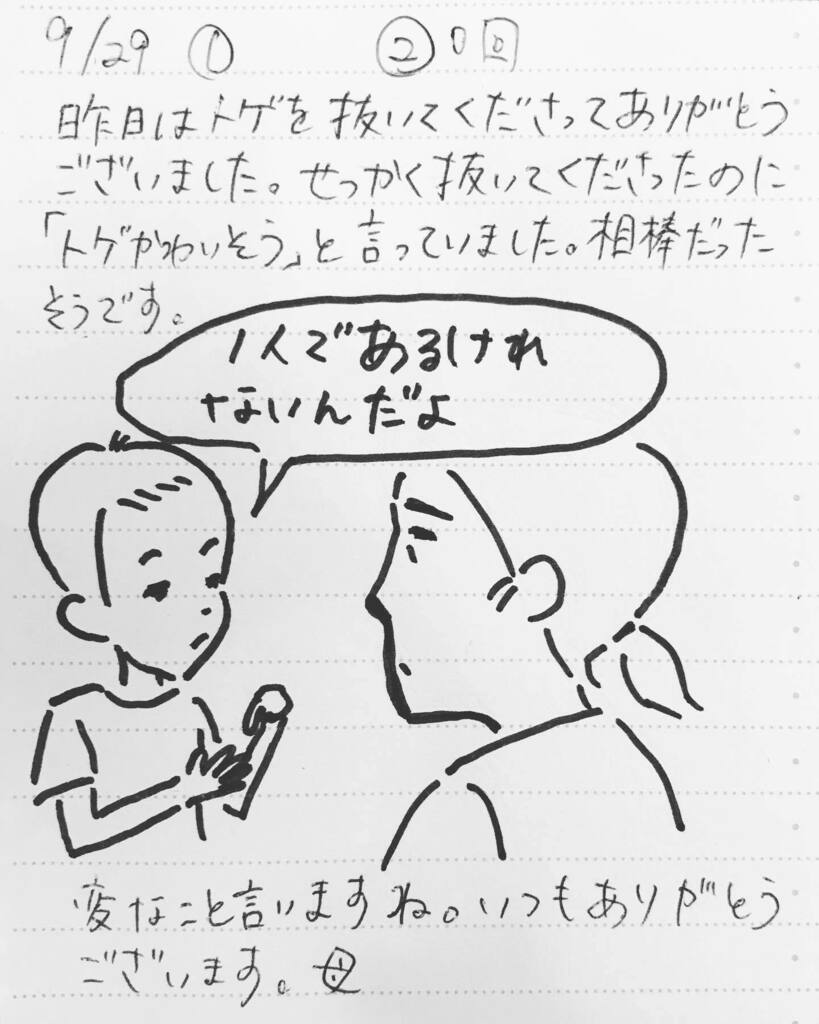 9/29 ① ② 0 回
昨日はトゲを抜いてくださってありがとう
ございました。せっかく抜いてくださったのに
「トゲかわいそう」と言っていました。相棒だった
そうです。
1人であるけれ
ないんだよ
変なこと言いますね。いつもありがとう
ございます。母